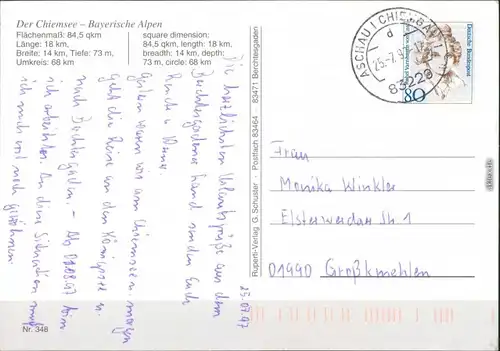 Der Chiemsee – Bayerische Alpen
Flächenmaß: 84,5 qkm
Länge: 18 km,
Breite: 14 km, Tiefe: 73 m,
Umkreis: 68 km
square dimension:
84,5 qkm, length: 18 km,
breadth: 14 km, depth:
73 m, circle: 68 km
Die herzlichsten Urlaubsgrüße aus dem
Berchtesgadener Land senden Euch
Gestern waren wir am Chiemsee u. morgen
geht die Reise an den Königssee u.
nach Berchtesgaden. – Ab 01.08.97 bin
ich arbeitslos. An diese Situation muß
ich mich erst noch gewöhnen.
25.07.97
Nr. 348
Ruperti-Verlag G. Schuster · Postfach 83464 83471 Berchtesgaden
ASCHAU I CHIEMGAU
d
25.-7.97
83229
Deutsche Bundespost
80
Frau
Monika Winkler
Elsterwerdaer Str. 1
01990 Großkmehlen